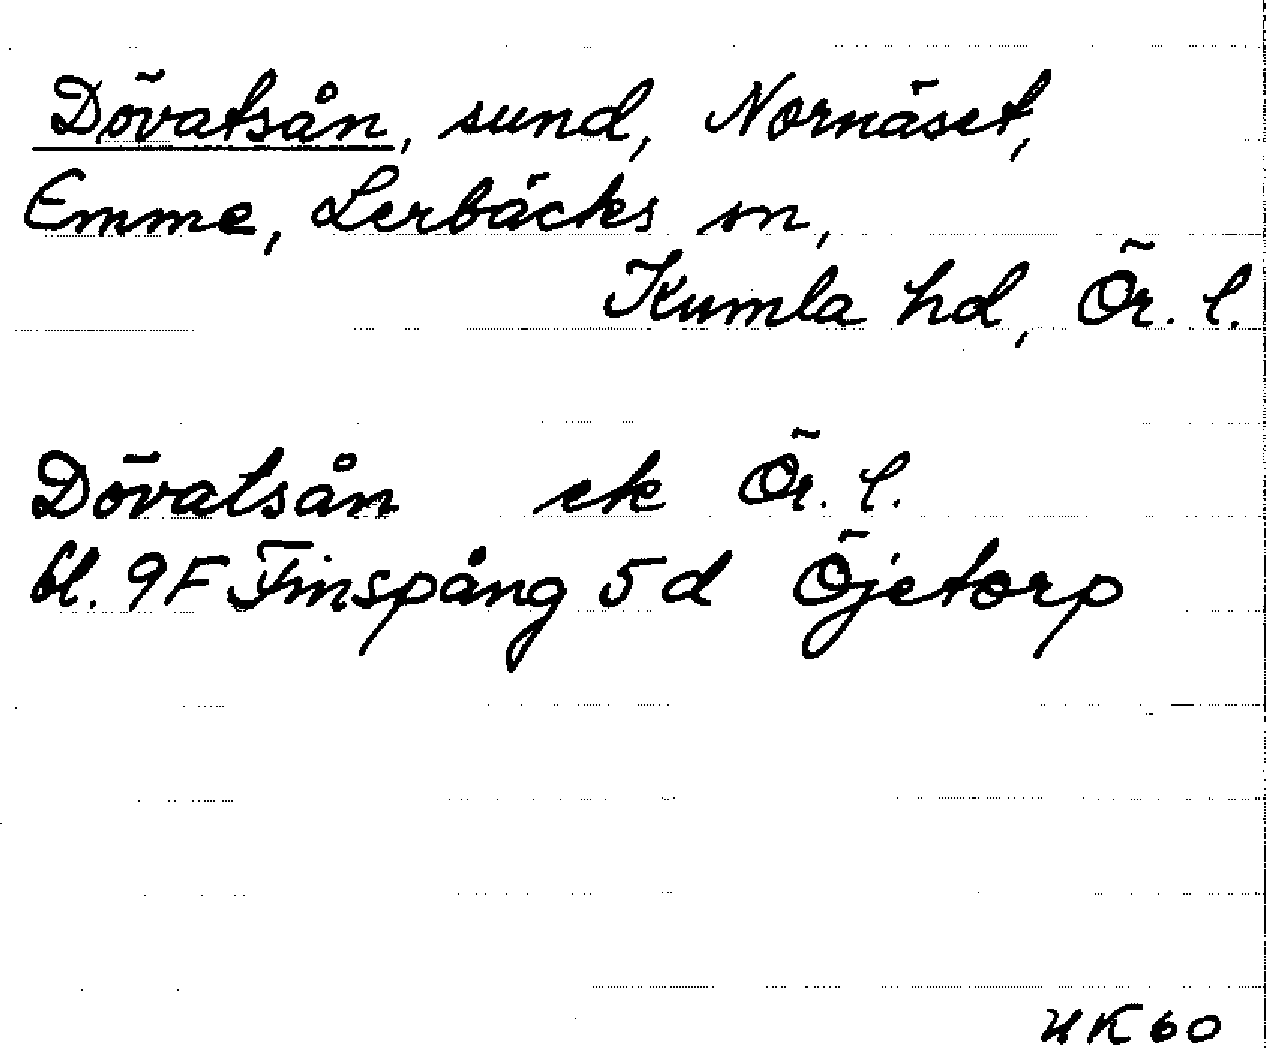 Dövatsån, sund, Nornäset,
Emme, Lerbäcks sn,
Kumla hd, Ör. l.
Dövatsån ek Ör. l.
bl. 9F Finspång 5 d Öjetorp
HK60